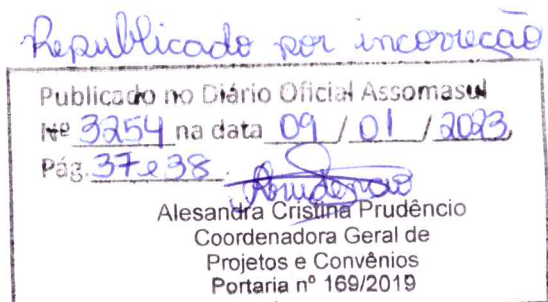 Republicado por incorreção
Publicado no Diário Oficial Assomasul
Nº 3254 na data 09 / 01 / 2023,
Pág. 37 e 38.
Prudêncio
Alesandra Cristina Prudêncio
Coordenadora Geral de
Projetos e Convênios
Portaria nº 169/2019